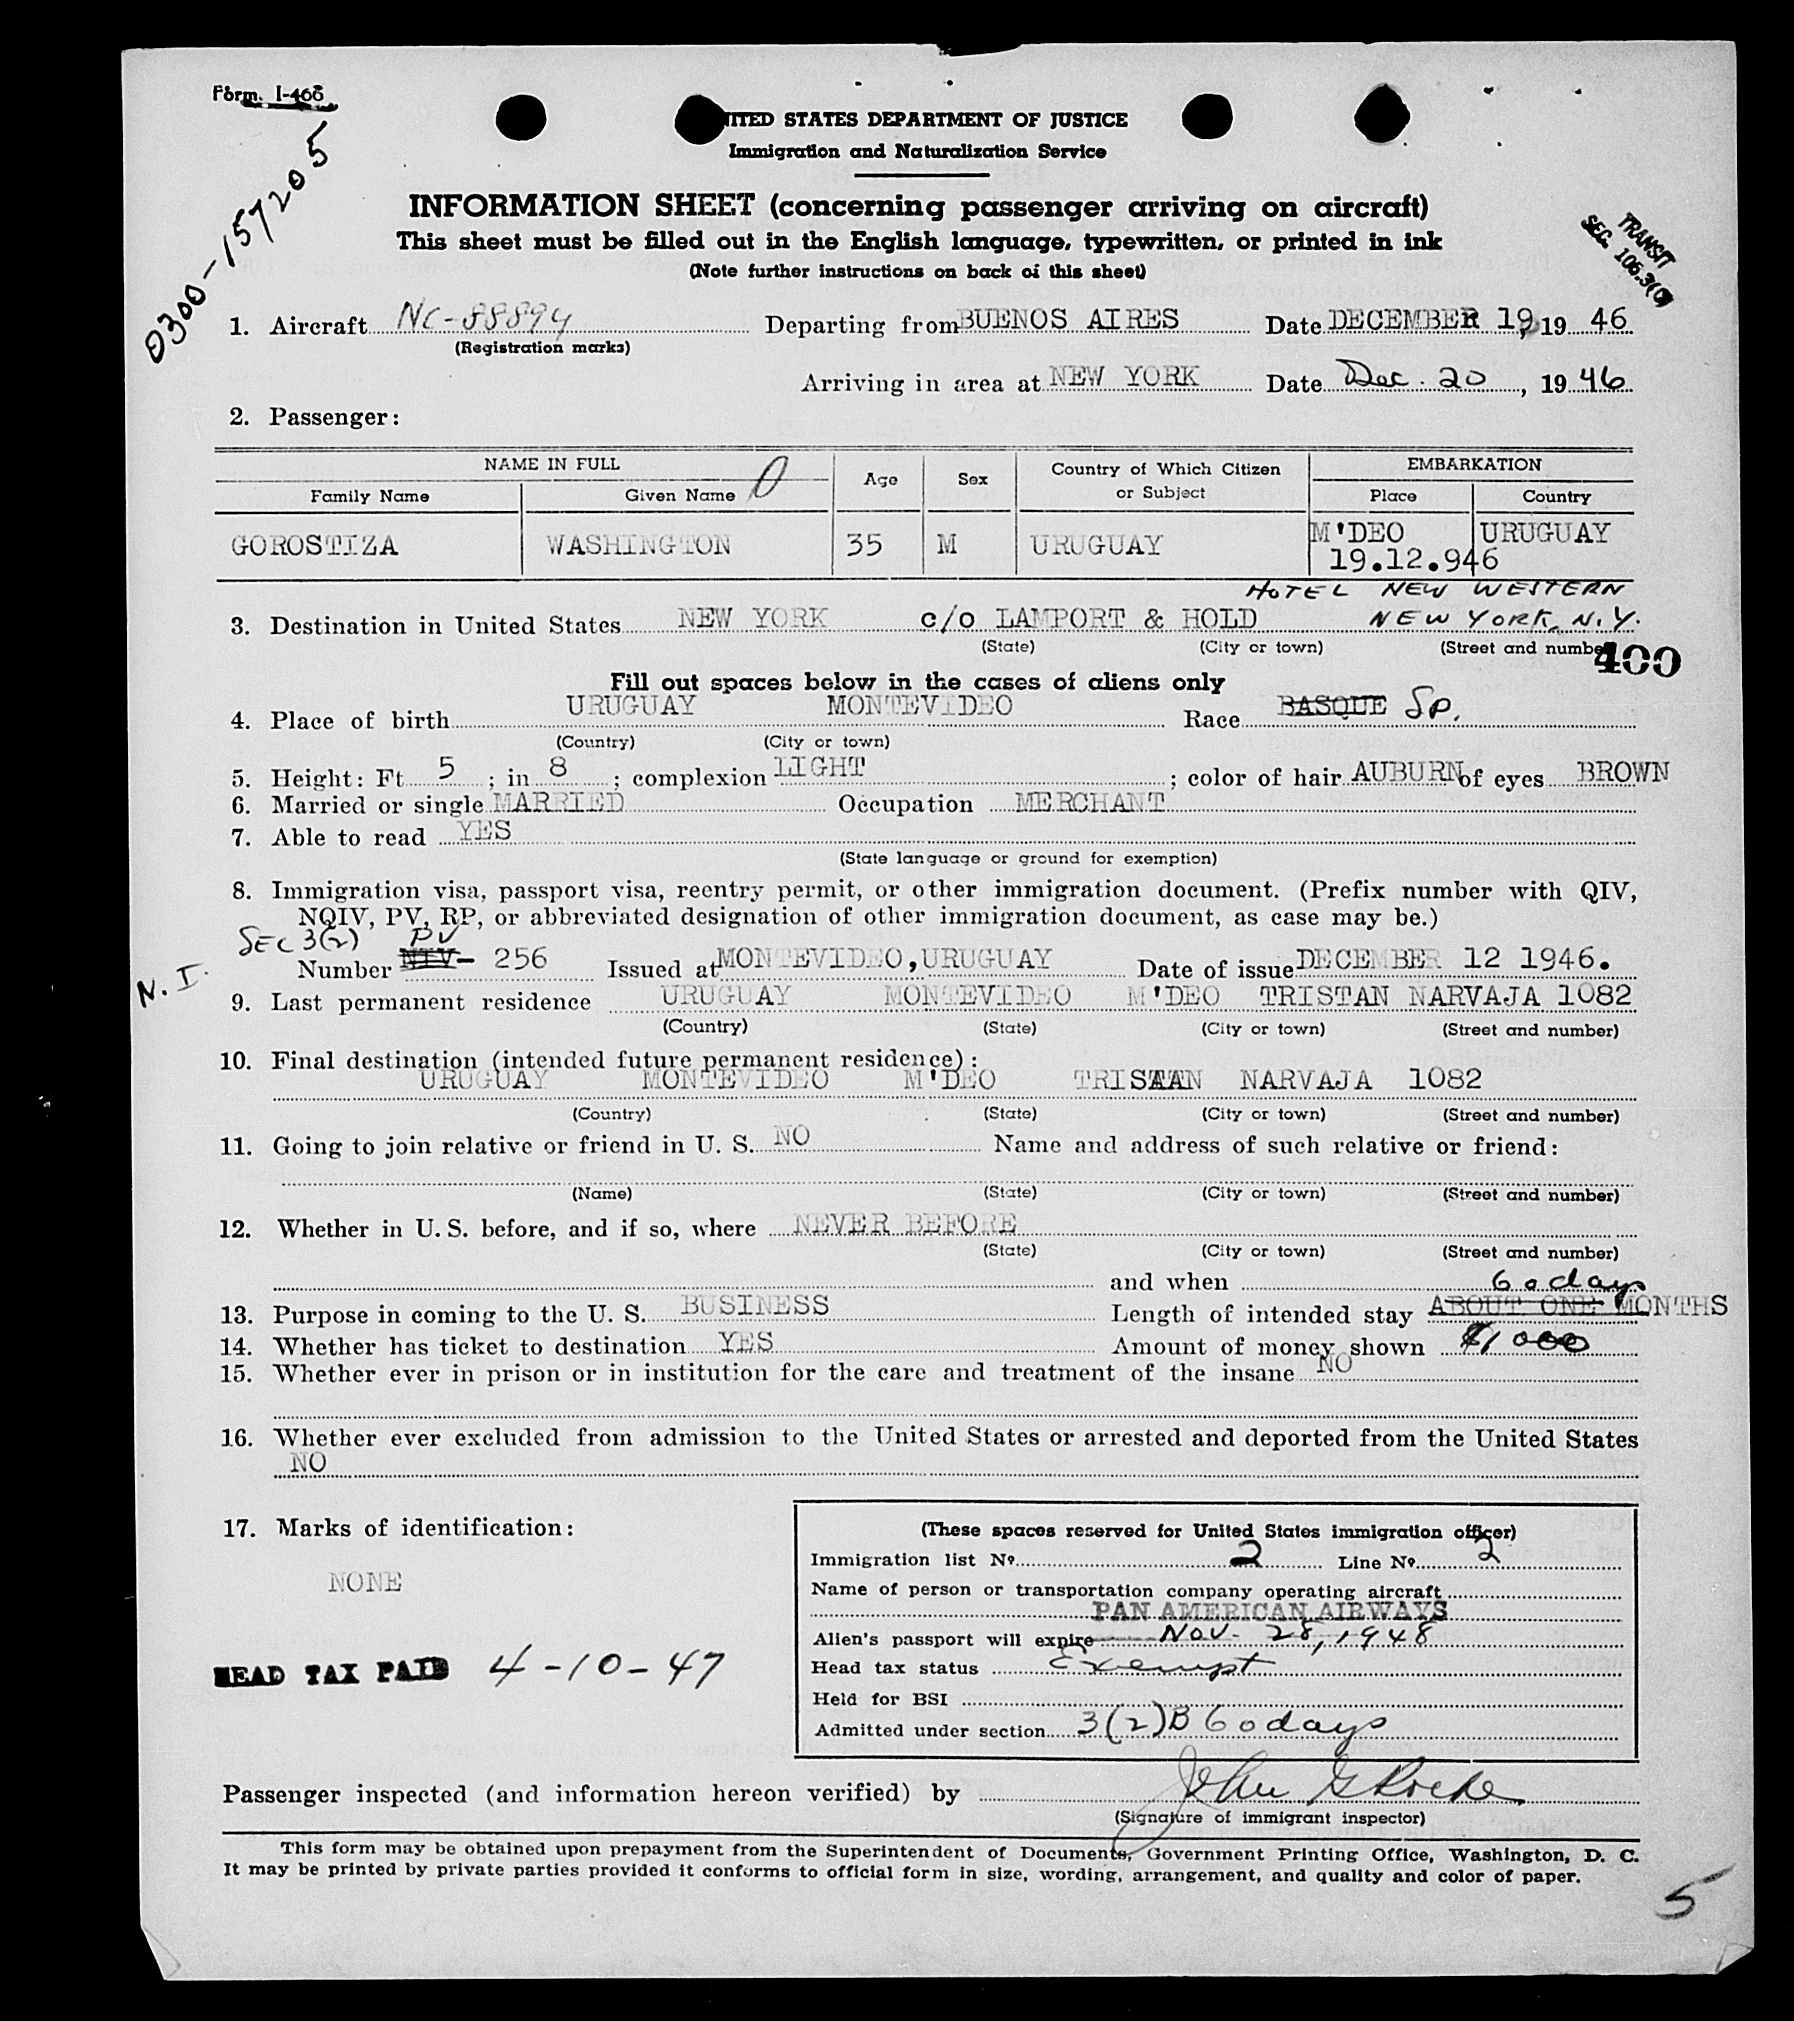 Form. I-466
UNITED STATES DEPARTMENT OF JUSTICE
Immigration and Naturalization Service
0300-157205
INFORMATION SHEET (concerning passenger arriving on aircraft)
This sheet must be filled out in the English language, typewritten, or printed in ink
(Note further instructions on back of this sheet)
TRANSIT
SEC. 106.3(C)
1. Aircraft NC-88894 Departing from BUENOS AIRES Date DECEMBER 19, 19 46
(Registration marks)
Arriving in area at NEW YORK Date Dec. 20, 19 46
2. Passenger:
NAME IN FULL 0 Age Sex Country of Which Citizen or Subject EMBARKATION
Family Name Given Name Place Country
GOROSTIZA WASHINGTON 35 M URUGUAY M'DEO URUGUAY
19.12.946
HOTEL NEW WESTERN
3. Destination in United States NEW YORK c/o LAMPORT & HOLD NEW YORK, N.Y.
(State) (City or town) (Street and number)
400
Fill out spaces below in the cases of aliens only
4. Place of birth URUGUAY MONTEVIDEO Race BASQUE Sp.
(Country) (City or town)
5. Height: Ft 5 ; in 8 ; complexion LIGHT ; color of hair AUBURN of eyes BROWN
6. Married or single MARRIED Occupation MERCHANT
7. Able to read YES
(State language or ground for exemption)
8. Immigration visa, passport visa, reentry permit, or other immigration document. (Prefix number with QIV,
NQIV, PV, RP, or abbreviated designation of other immigration document, as case may be.)
SEC 3(2) PV
Number NIV- 256 Issued at MONTEVIDEO,URUGUAY Date of issue DECEMBER 12 1946.
N.I.
9. Last permanent residence URUGUAY MONTEVIDEO M'DEO TRISTAN NARVAJA 1082
(Country) (State) (City or town) (Street and number)
10. Final destination (intended future permanent residence):
URUGUAY MONTEVIDEO M'DEO TRISTAN NARVAJA 1082
(Country) (State) (City or town) (Street and number)
11. Going to join relative or friend in U. S. NO Name and address of such relative or friend:
(Name) (State) (City or town) (Street and number)
12. Whether in U. S. before, and if so, where NEVER BEFORE
(State) (City or town) (Street and number)
and when
60 days
13. Purpose in coming to the U. S. BUSINESS Length of intended stay ABOUT ONE MONTHS
14. Whether has ticket to destination YES Amount of money shown $1000
15. Whether ever in prison or in institution for the care and treatment of the insane NO
16. Whether ever excluded from admission to the United States or arrested and deported from the United States
NO
17. Marks of identification:
NONE
HEAD TAX PAID 4-10-47
(These spaces reserved for United States immigration officer)
Immigration list No. 2 Line No. 2
Name of person or transportation company operating aircraft
PAN AMERICAN AIRWAYS
Alien's passport will expire Nov. 28, 1948
Head tax status Exempt
Held for BSI
Admitted under section 3(2)B 60 days
Passenger inspected (and information hereon verified) by John G
(Signature of immigrant inspector)
This form may be obtained upon prepayment from the Superintendent of Documents, Government Printing Office, Washington, D. C.
It may be printed by private parties provided it conforms to official form in size, wording, arrangement, and quality and color of paper.
5